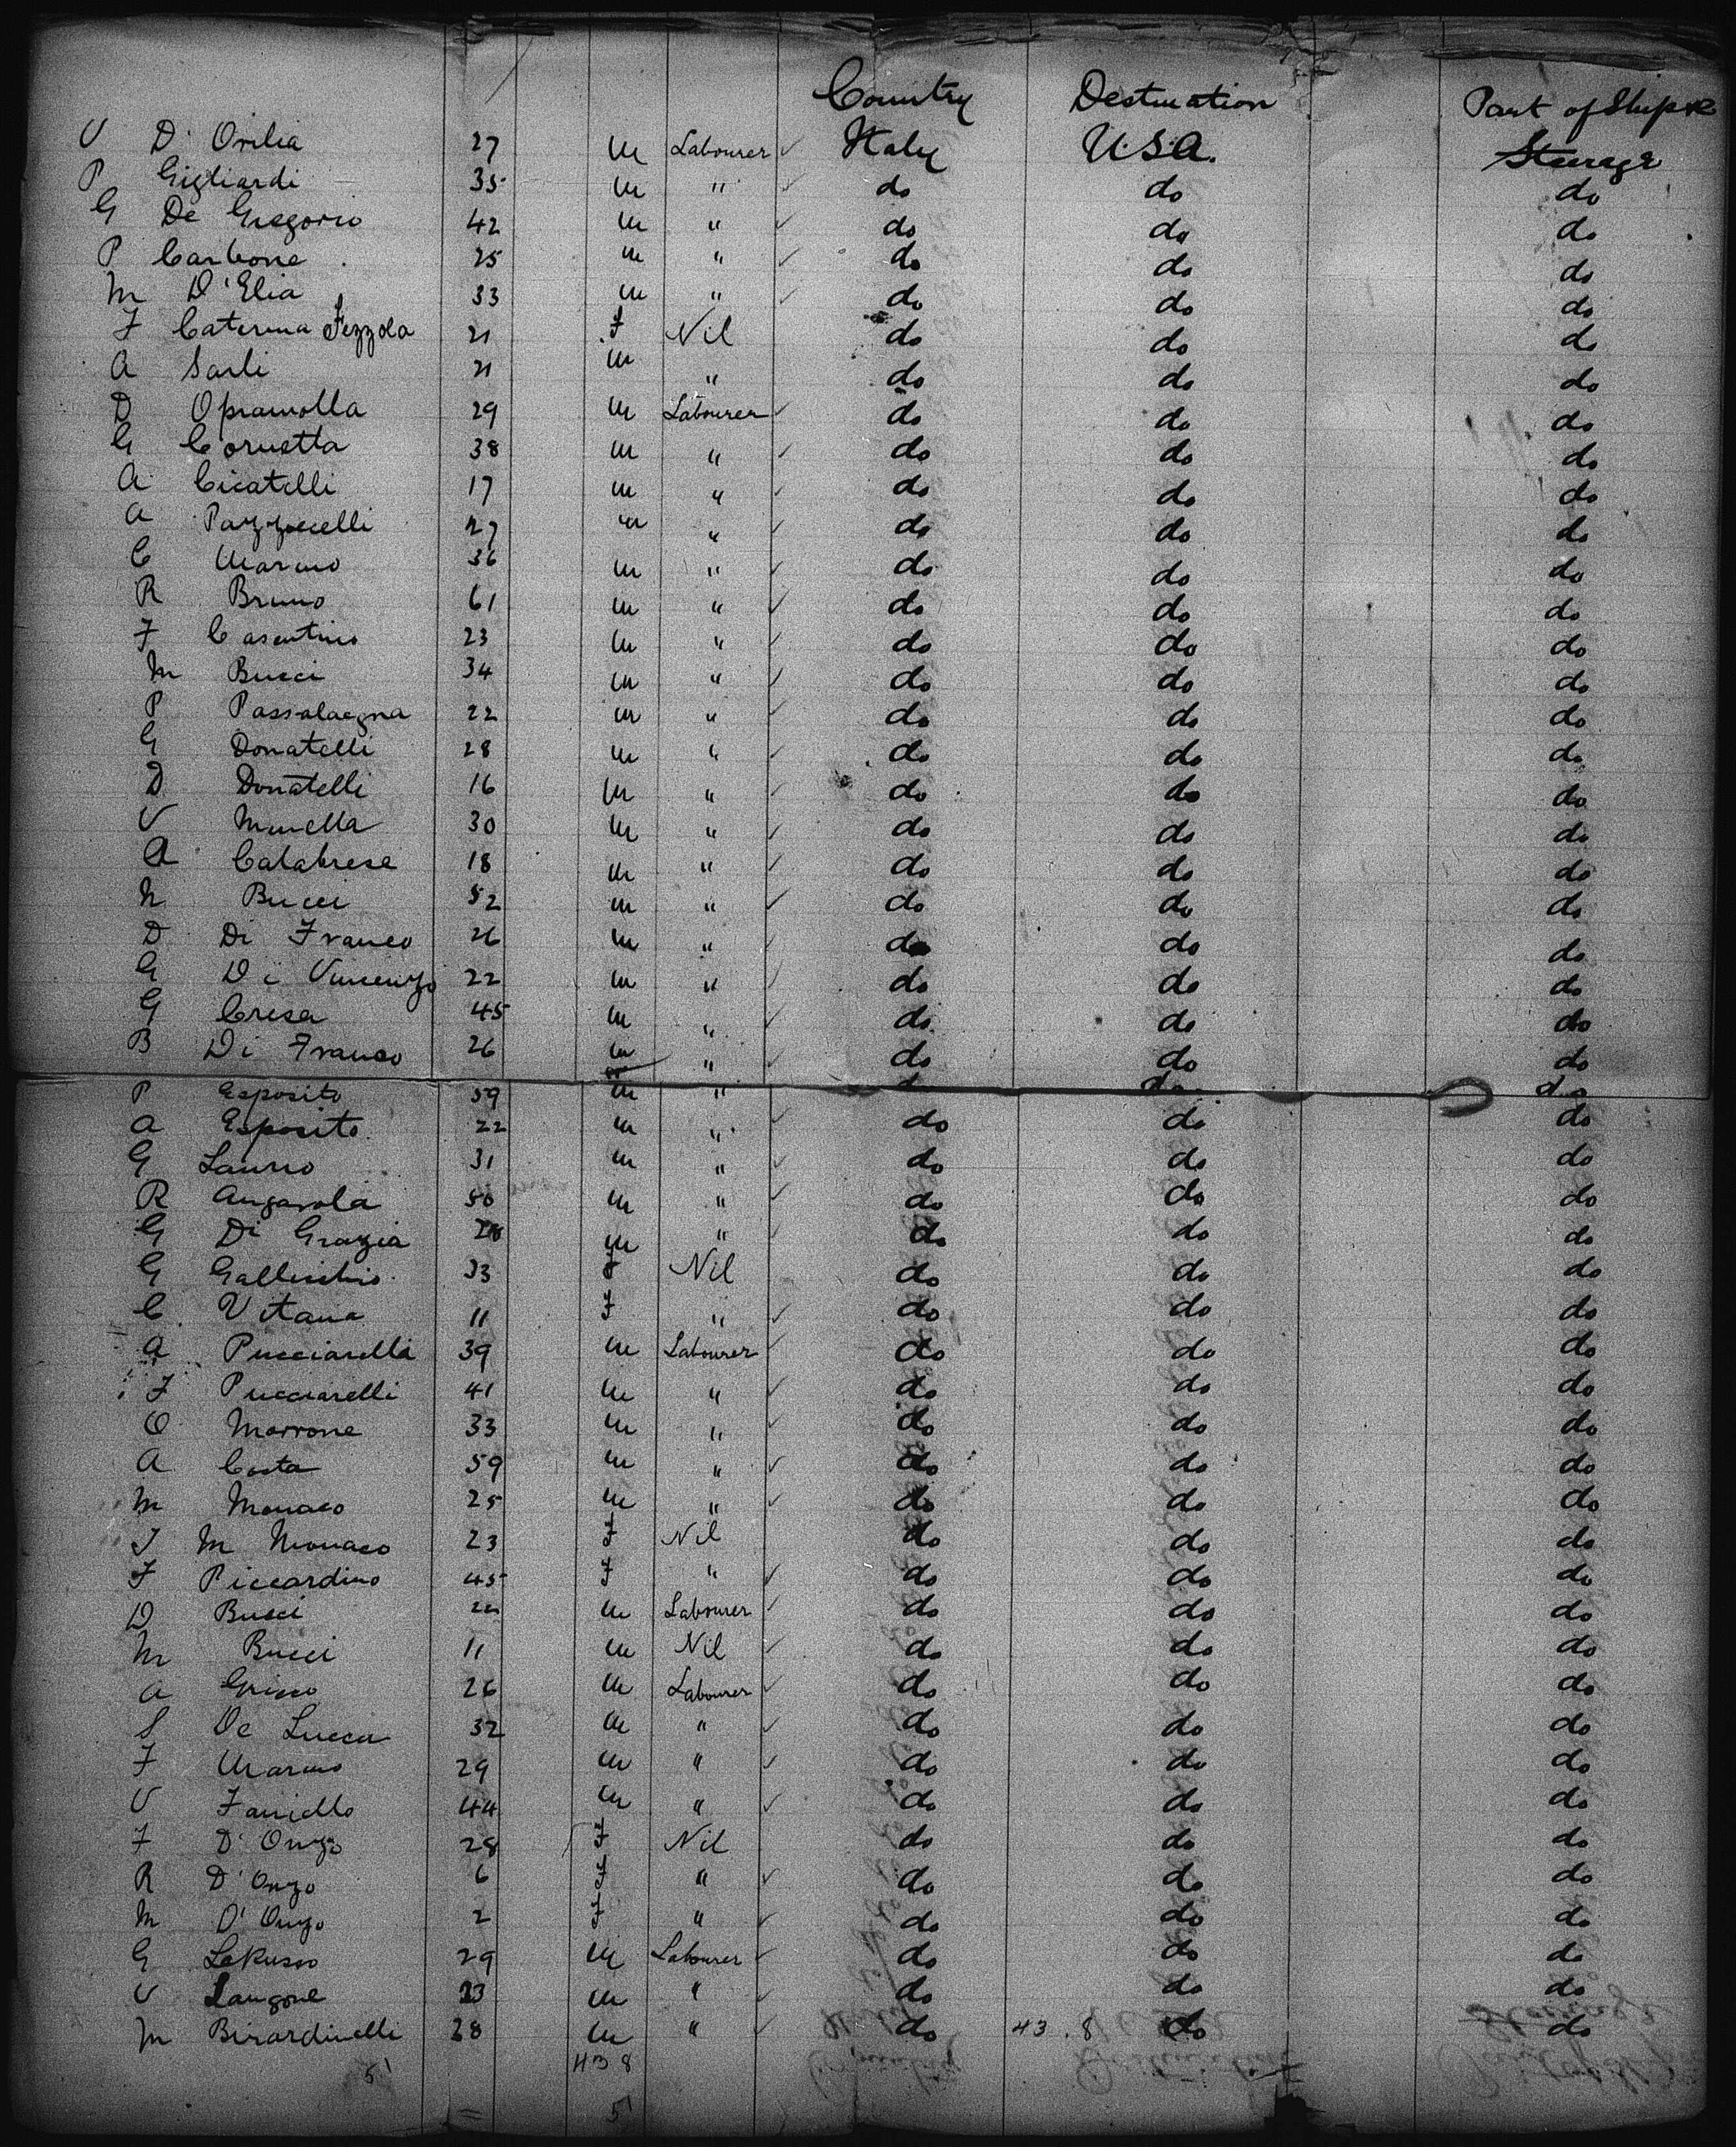 Country Destination Part of Ship &c
V D'Orilia 27 m Labourer ✓ Italy U.S.A. Steerage
P Gigliardi 35 m " ✓ do do do
G De Gregorio 42 m " ✓ do do do
P Carbone 25 m " ✓ do do do
M D'Elia 33 m " ✓ do do do
F Caterina Fezzola 21 F Nil do do do
A Sarli 21 m " do do do
D Opramolla 29 m Labourer ✓ do do do
G Cornetta 38 m " ✓ do do do
A Cicatelli 17 m " ✓ do do do
A 27 m " ✓ do do do
C Marino 36 m " ✓ do do do
R Bruno 61 m " ✓ do do do
F Casentino 23 m " ✓ do do do
M Bucci 34 m " ✓ do do do
P Passalaqna 22 m " ✓ do do do
G Donatelli 28 m " ✓ do do do
D Donatelli 16 m " ✓ do do do
V Minella 30 m " ✓ do do do
A Calabrese 18 m " ✓ do do do
N Bucci 52 m " ✓ do do do
D Di Franco 26 m " ✓ do do do
G Di Vincenzo 22 m " ✓ do do do
G Cresa 45 m " ✓ do do do
B Di Franco 26 m " ✓ do do do
P Esposito 59 m " do do do
A Esposito 22 m " ✓ do do do
G Laurio 31 m " ✓ do do do
R Angarola 50 m " ✓ do do do
G Di Grazia 28 m " ✓ do do do
G Gallicchio 33 F Nil do do do
C Vitana 11 F " ✓ do do do
A Pucciarelli 39 m Labourer ✓ do do do
F Pucciarelli 41 m " ✓ do do do
O Morrone 33 m " ✓ do do do
A Costa 59 m " ✓ do do do
M Monaco 25 m " ✓ do do do
J M Monaco 23 F Nil do do do
F Piccardino 45 F " ✓ do do do
D Bucci 22 m Labourer ✓ do do do
M Bucci 11 m Nil ✓ do do do
A Grisso 26 m Labourer ✓ do do do
S De Lucca 32 m " ✓ do do do
F Marino 29 m " ✓ do do do
V Faniello 44 m " ✓ do do do
F D'Onzo 28 F Nil do do do
R D'Onzo 6 F " ✓ do do do
M D'Onzo 2 F " ✓ do do do
G LoRusso 29 m Labourer ✓ do do do
V Langone 23 m " ✓ do do do
M Birardinelli 28 m " ✓ do 43.8 do do
51 43 8
51